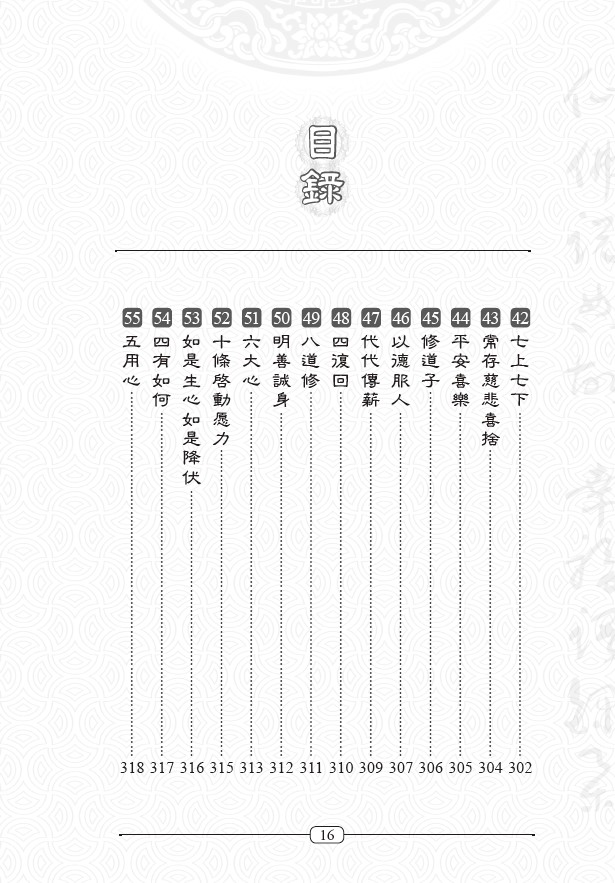 目錄
42 七上七下 302
43 常存慈悲喜捨 304
44 平安喜樂 305
45 修道子 306
46 以德服人 307
47 代代傳薪 309
48 四復回 310
49 八道修 311
50 明善誠身 312
51 六大心 313
52 十條啓動愿力 315
53 如是生心如是降伏 316
54 四有如何 317
55 五用心 318
16